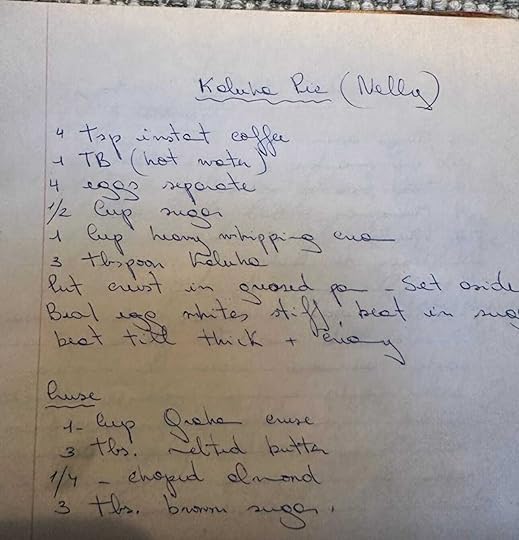 Kaluha Pie (Nelly)
4 tsp instat coffee
1 TB (hot water)
4 eggs separate
1/2 Cup sugar
1 Cup heavy whipping
3 tbspoon Kaluha
Put crust in greased pan - Set aside
Beat egg whites stiff beat in sug
beat till thick +
Cruse
1 - Cup Graha cruse
3 tbs. melted butter
1/4 - choped almond
3 tbs. brown sugar.